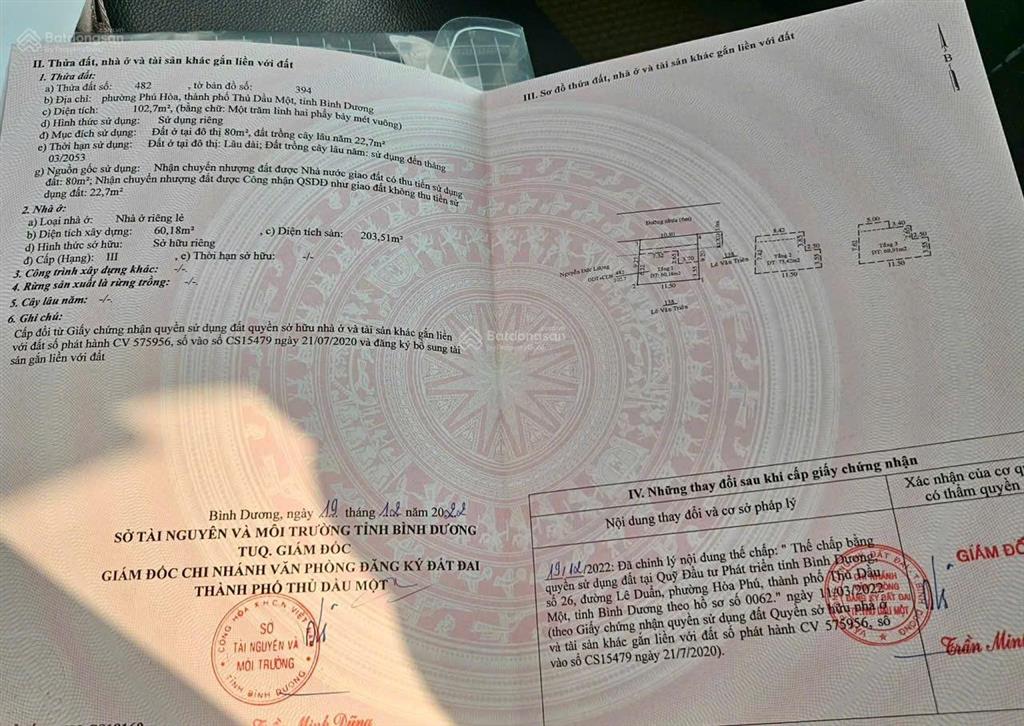 II. Thửa đất, nhà ở và tài sản khác gắn liền với đất
1. Thửa đất:
a) Thửa đất số: 482 , tờ bản đồ số: 394
b) Địa chỉ: phường Phú Hòa, thành phố Thủ Dầu Một, tỉnh Bình Dương
c) Diện tích: 102,7m², (bằng chữ: Một trăm linh hai phẩy bảy mét vuông)
d) Hình thức sử dụng: Sử dụng riêng
đ) Mục đích sử dụng: Đất ở tại đô thị 80m², đất trồng cây lâu năm 22,7m²
e) Thời hạn sử dụng: Đất ở tại đô thị: Lâu dài; Đất trồng cây lâu năm: sử dụng đến tháng
03/2053
g) Nguồn gốc sử dụng: Nhận chuyển nhượng đất được Nhà nước giao đất có thu tiền sử dụng
đất: 80m²; Nhận chuyển nhượng đất được Công nhận QSDĐ như giao đất không thu tiền sử
dụng đất: 22,7m²
2. Nhà ở:
a) Loại nhà ở: Nhà ở riêng lẻ
b) Diện tích xây dựng: 60,18m² , c) Diện tích sàn: 203,51m²
d) Hình thức sở hữu: Sở hữu riêng
đ) Cấp (Hạng): III , e) Thời hạn sở hữu: -/-
3. Công trình xây dựng khác: -/-
4. Rừng sản xuất là rừng trồng: -/-
5. Cây lâu năm: -/-
6. Ghi chú:
Cấp đổi từ Giấy chứng nhận quyền sử dụng đất quyền sở hữu nhà ở và tài sản khác gắn liền
với đất số phát hành CV 575956, số vào sổ CS15479 ngày 21/07/2020 và đăng ký bổ sung tài
sản gắn liền với đất
Bình Dương, ngày 19 tháng 12 năm 2022
SỞ TÀI NGUYÊN VÀ MÔI TRƯỜNG TỈNH BÌNH DƯƠNG
TUQ. GIÁM ĐỐC
GIÁM ĐỐC CHI NHÁNH VĂN PHÒNG ĐĂNG KÝ ĐẤT ĐAI
THÀNH PHỐ THỦ DẦU MỘT
CỘNG HÒA X.H.C.N VIỆT
SỞ
TÀI NGUYÊN VÀ
MÔI TRƯỜNG
TỈNH BÌNH DƯƠNG
Trần Minh Dũng
III. Sơ đồ thửa đất, nhà ở và tài sản khác gắn liền với đất
B
Đường nhựa (6m)
10.80
Nguyễn Đức Lương
ODT+CLN 482
Tầng 1
DT: 60,18m²
11.50
138
Lê Văn Triên
138
Lê Văn Triên
8.42
Tầng 2
DT: 73,42m²
11.50
5.00
3.40
7.61
Tầng 3
DT: 69,91m²
11.50
IV. Những thay đổi sau khi cấp giấy chứng nhận
Nội dung thay đổi và cơ sở pháp lý
Xác nhận của cơ qu
có thẩm quyền
19/12/2022: Đã chỉnh lý nội dung thế chấp: " Thế chấp bằng
quyền sử dụng đất tại Quỹ Đầu tư Phát triển tỉnh Bình Dương,
số 26, đường Lê Duẩn, phường Hòa Phú, thành phố Thủ Dầu
Một, tỉnh Bình Dương theo hồ sơ số 0062." ngày 11/03/2022
(theo Giấy chứng nhận quyền sử dụng đất Quyền sở hữu nhà ở
và tài sản khác gắn liền với đất số phát hành CV 575956, số
vào sổ CS15479 ngày 21/7/2020).
GIÁM ĐỐ
CHI NHÁNH
ĐĂNG KÝ ĐẤT ĐAI
TP. THỦ DẦU MỘT
Trần Minh
Batdongsan
Batdongsan